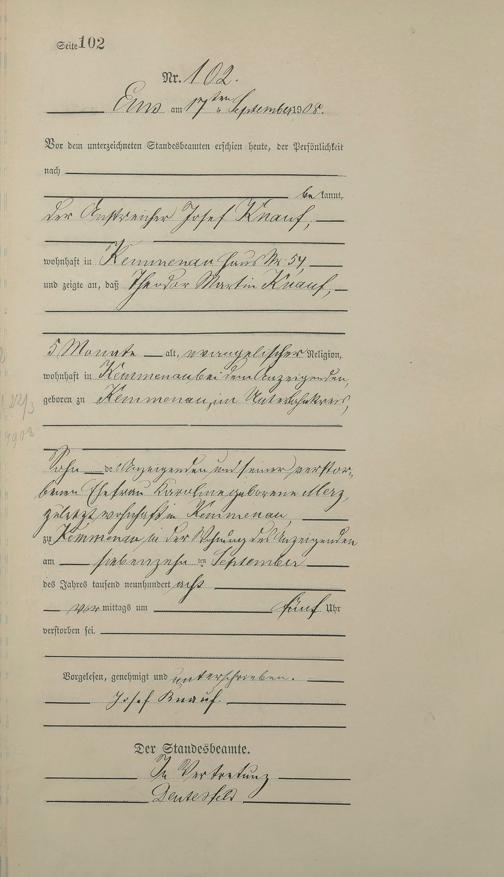 Seite 102
Nr. 102.
Ems am 17ten September 1908.
Vor dem unterzeichneten Standesbeamten erschien heute, der Persönlichkeit
nach
bekannt,
der Anstreicher Josef Knauf,
wohnhaft in Kemmenau Haus Nr. 54,
und zeigte an, daß Theodor Martin Knauf,
5 Monate alt, evangelischer Religion,
wohnhaft in Kemmenau bei dem Anzeigenden,
geboren zu Kemmenau, im Unterlahnkreis,
Sohn des Anzeigenden und seiner verstor-
benen Ehefrau Karoline geborene Merz
zuletzt wohnhaft in Kemmenau
zu Kemmenau, in der Wohnung des Anzeigenden
am siebenzehnten September
des Jahres tausend neunhundert acht
vormittags um fünf Uhr
verstorben sei.
Vorgelesen, genehmigt und unterschrieben.
Josef Knauf
Der Standesbeamte.
In Vertretung